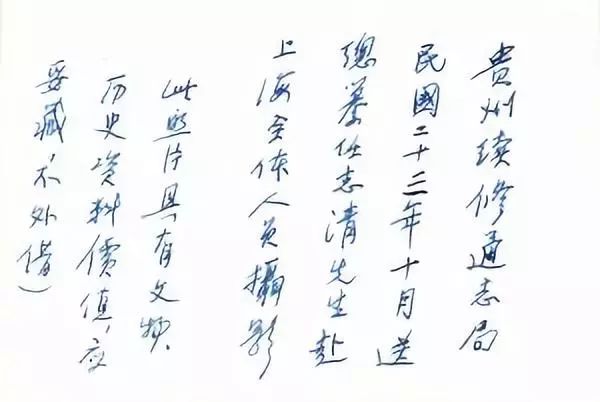 貴州续修通志局
民國二十三年十月送
總纂任志清先生赴
上海全体人员攝影
此照片具有文物、
历史资料價值，应
妥藏，不外借）